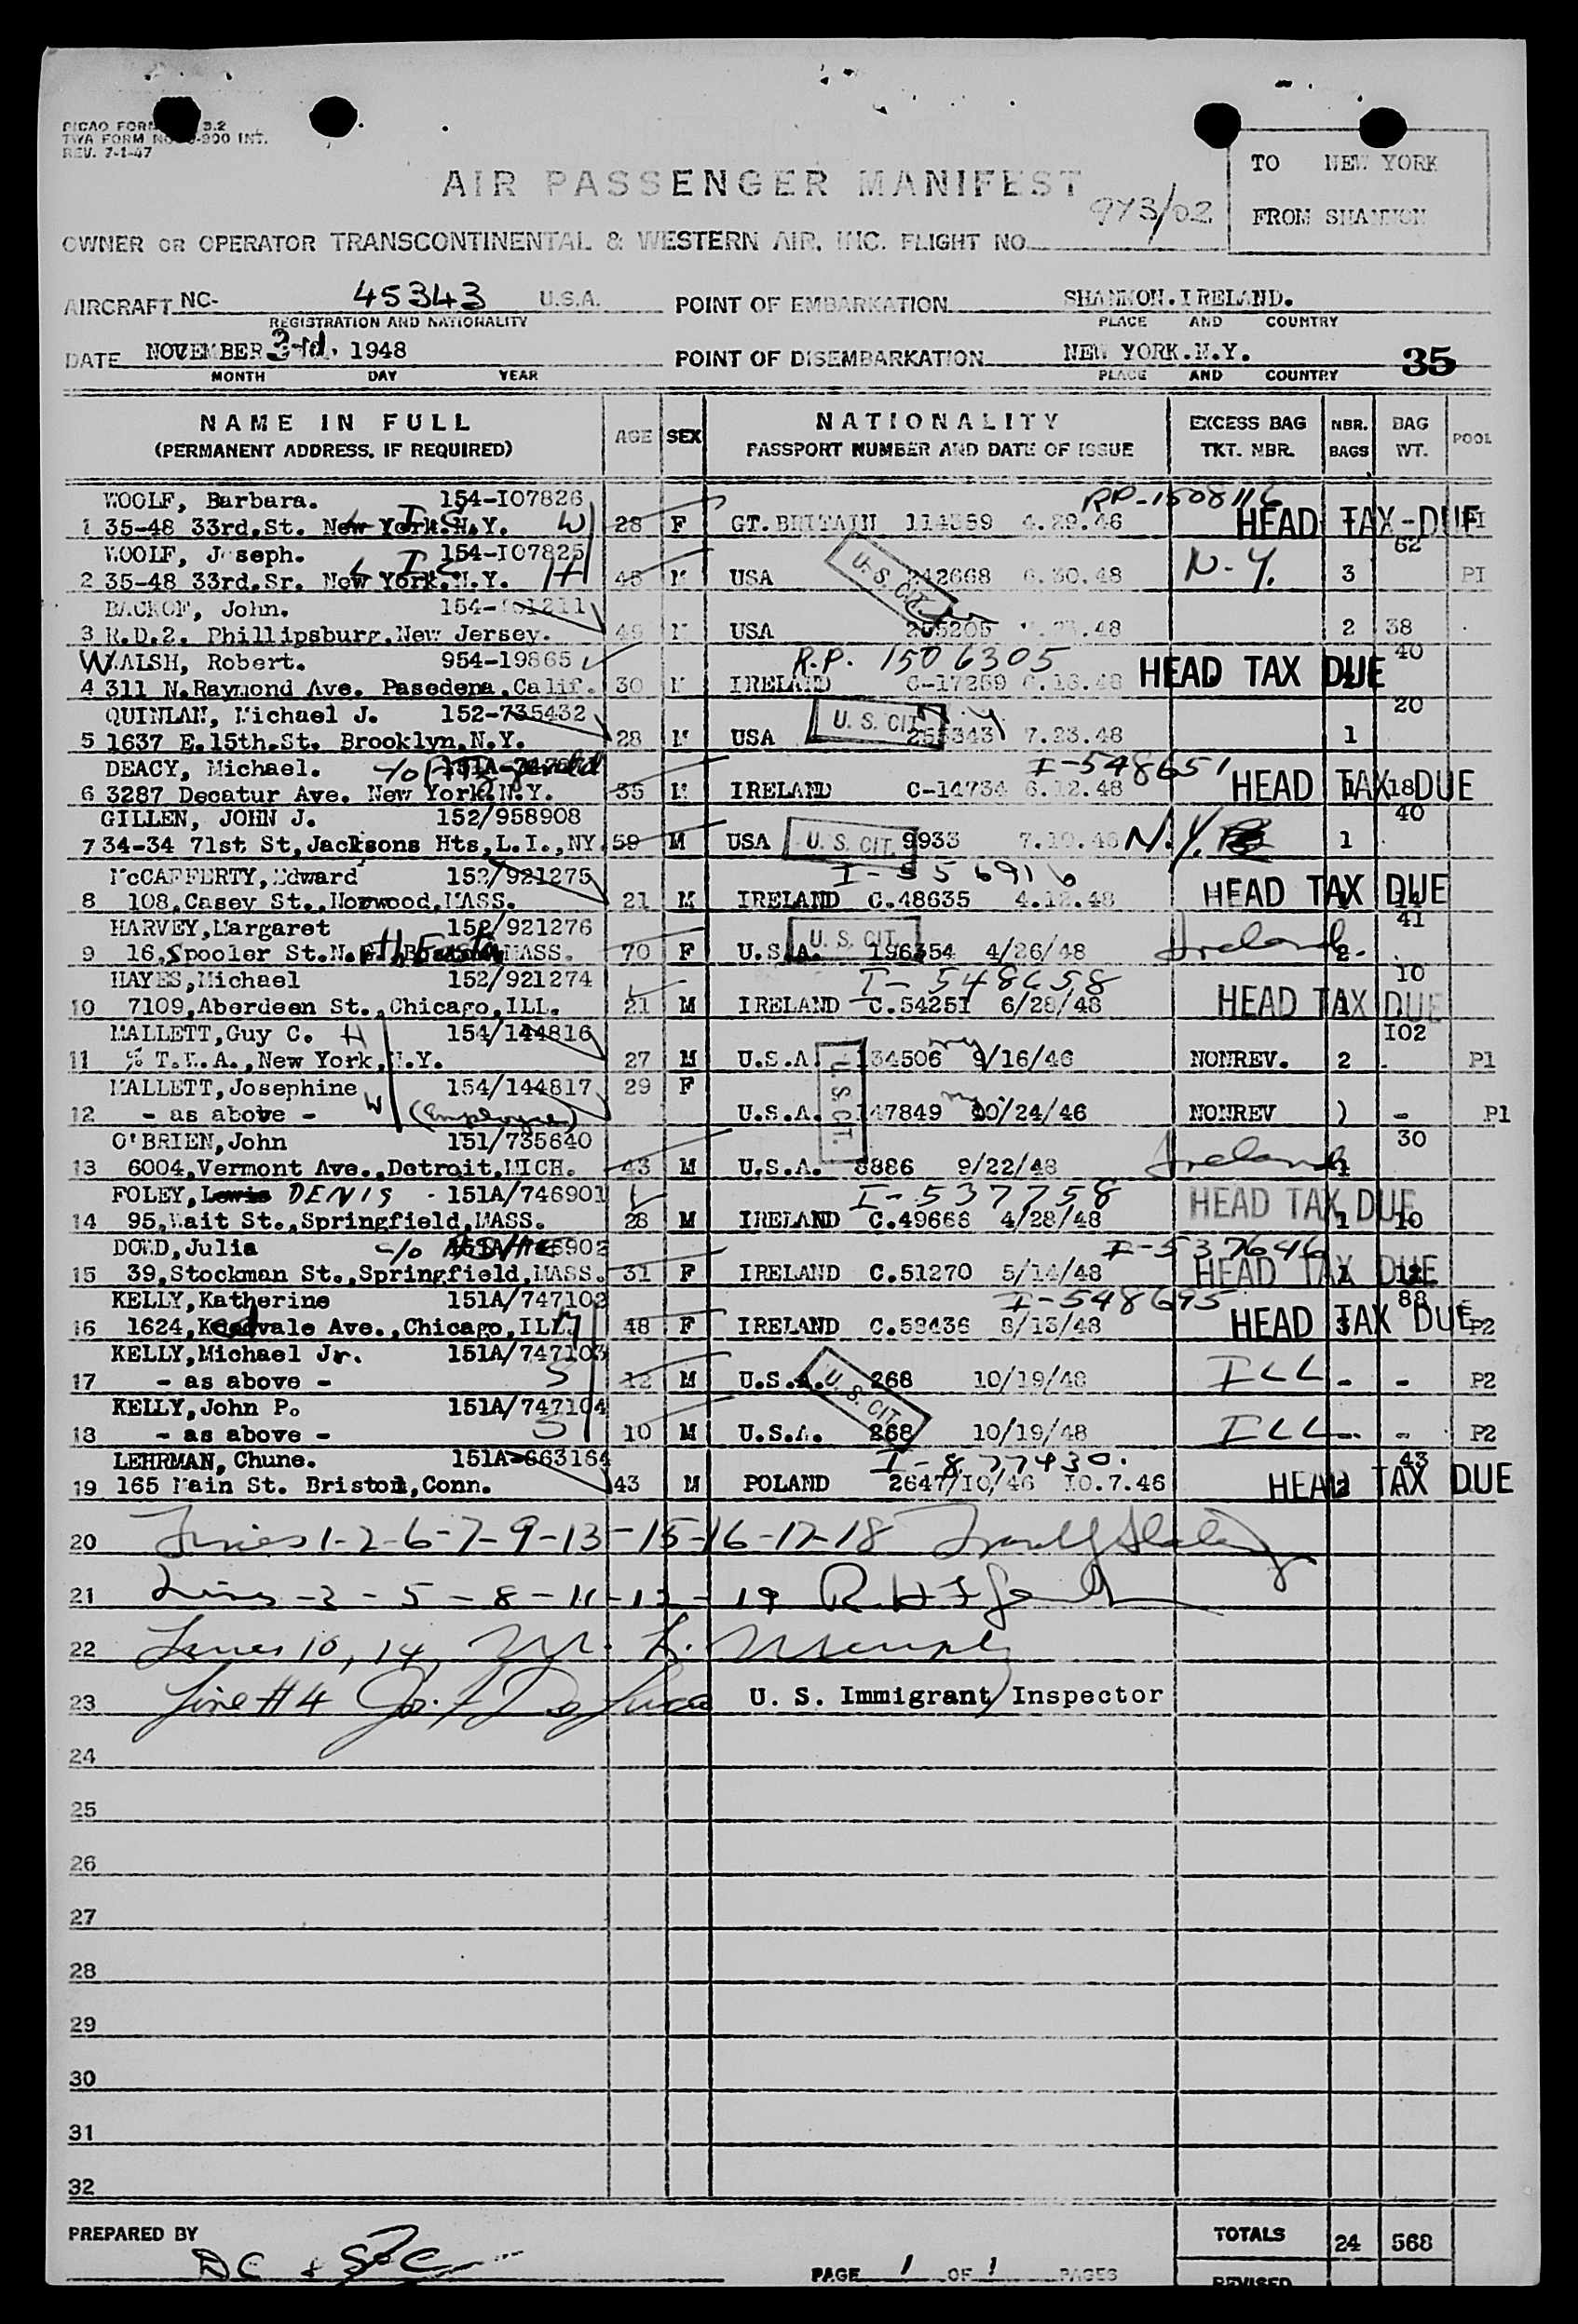 REV. 7-1-47
TO NEW YORK
AIR PASSENGER MANIFEST
973/02
FROM SHANNON
OWNER OR OPERATOR TRANSCONTINENTAL & WESTERN AIR, INC. FLIGHT NO.
AIRCRAFT NC- 45343 U.S.A. POINT OF EMBARKATION SHANNON.IRELAND.
REGISTRATION AND NATIONALITY PLACE AND COUNTRY
DATE NOVEMBER 3rd. 1948 POINT OF DISEMBARKATION NEW YORK.N.Y. 35
MONTH DAY YEAR PLACE AND COUNTRY
NAME IN FULL AGE SEX NATIONALITY EXCESS BAG NBR. BAG POOL
(PERMANENT ADDRESS, IF REQUIRED) PASSPORT NUMBER AND DATE OF ISSUE TKT. NBR. BAGS WT.
WOOLF, Barbara. 154-I07826 RP-1508116
1 35-48 33rd.St. New York.N.Y. W 28 F GT.BRITAIN 114559 4.29.46 HEAD TAX DUE PI
WOOLF, Joseph. 154-I07825 62
2 35-48 33rd.Sr. New York.N.Y. H 45 M USA 242668 6.30.48 U.S. CIT. N.Y. 3 PI
BACKOF, John.
3 R.D.2. Phillipsburg.New Jersey. 49 M USA 2 38
WALSH, Robert. 954-19865 R.P. 1506305 40
4 311 N.Raymond Ave. Pasedena.Calif. 30 M IRELAND C-17259 HEAD TAX DUE
QUINLAN, Michael J. 152-735432 U.S. CIT. 20
5 1637 E.15th.St. Brooklyn.N.Y. 28 M USA 7.23.48 1
DEACY, Michael. c/o I-548651
6 3287 Decatur Ave. New York.N.Y. 35 M IRELAND C-14734 6.12.48 HEAD TAX DUE 18
GILLEN, JOHN J. 152/958908 40
7 34-34 71st St,Jacksons Hts,L.I.,NY. 59 M USA U.S. CIT. 9933 N.Y. 1
McCAFFERTY,Edward 152/921275 I-556916
8 108,Casey St.,Norwood,MASS. 21 M IRELAND C.48635 4.12.48 HEAD TAX DUE
HARVEY,Margaret 152/921276 U.S. CIT. 41
9 16,Spooler St.N. MASS. 70 F U.S.A. 196354 4/26/48 Ireland 2
HAYES,Michael 152/921274 I-548658 10
10 7109,Aberdeen St.,Chicago,ILL. 21 M IRELAND C.54251 6/28/48 HEAD TAX DUE
MALLETT,Guy C. H 154/144816 I02
11 % T.W.A.,New York,N.Y. 27 M U.S.A. 134506 9/16/46 NONREV. 2 P1
MALLETT,Josephine W 154/144817 29 F U.S. CIT.
12 - as above - (Employee) U.S.A. 147849 10/24/46 NONREV ) - P1
O'BRIEN,John 151/735640 30
13 6004,Vermont Ave.,Detroit,MICH. 43 M U.S.A. 8886 9/22/48 Ireland
FOLEY, DENIS 151A/746901 I-537758
14 95,Wait St.,Springfield,MASS. 28 M IRELAND C.49666 4/28/48 HEAD TAX DUE 1 10
DOWD,Julia c/o I-537646
15 39,Stockman St.,Springfield,MASS. 31 F IRELAND C.51270 5/14/48 HEAD TAX DUE
KELLY,Katherine 151A/747102 I-548695 88
16 1624,Kedvale Ave.,Chicago,ILL. 48 F IRELAND C.58436 8/13/48 HEAD TAX DUE 3 P2
KELLY,Michael Jr. 151A/747103
17 - as above - S 12 M U.S.A. 268 10/19/48 ILL - - P2
KELLY,John P. 151A/747104 U.S. CIT.
18 - as above - S 10 M U.S.A. 268 10/19/48 ILL - - P2
LEHRMAN, Chune. 151A-663164 I-877430. 43
19 165 Main St. Bristol,Conn. 43 M POLAND 2647/IO/46 IO.7.46 HEAD TAX DUE
20 Lines 1-2-6-7-9-13-15-16-17-18
21 Lines -3-5-8-11-12-19
22 Lines 10, 14,
23 Line #4 U. S. Immigrant Inspector
24
25
26
27
28
29
30
31
32
PREPARED BY TOTALS 24 568
PAGE 1 OF 1 PAGES
REVISED